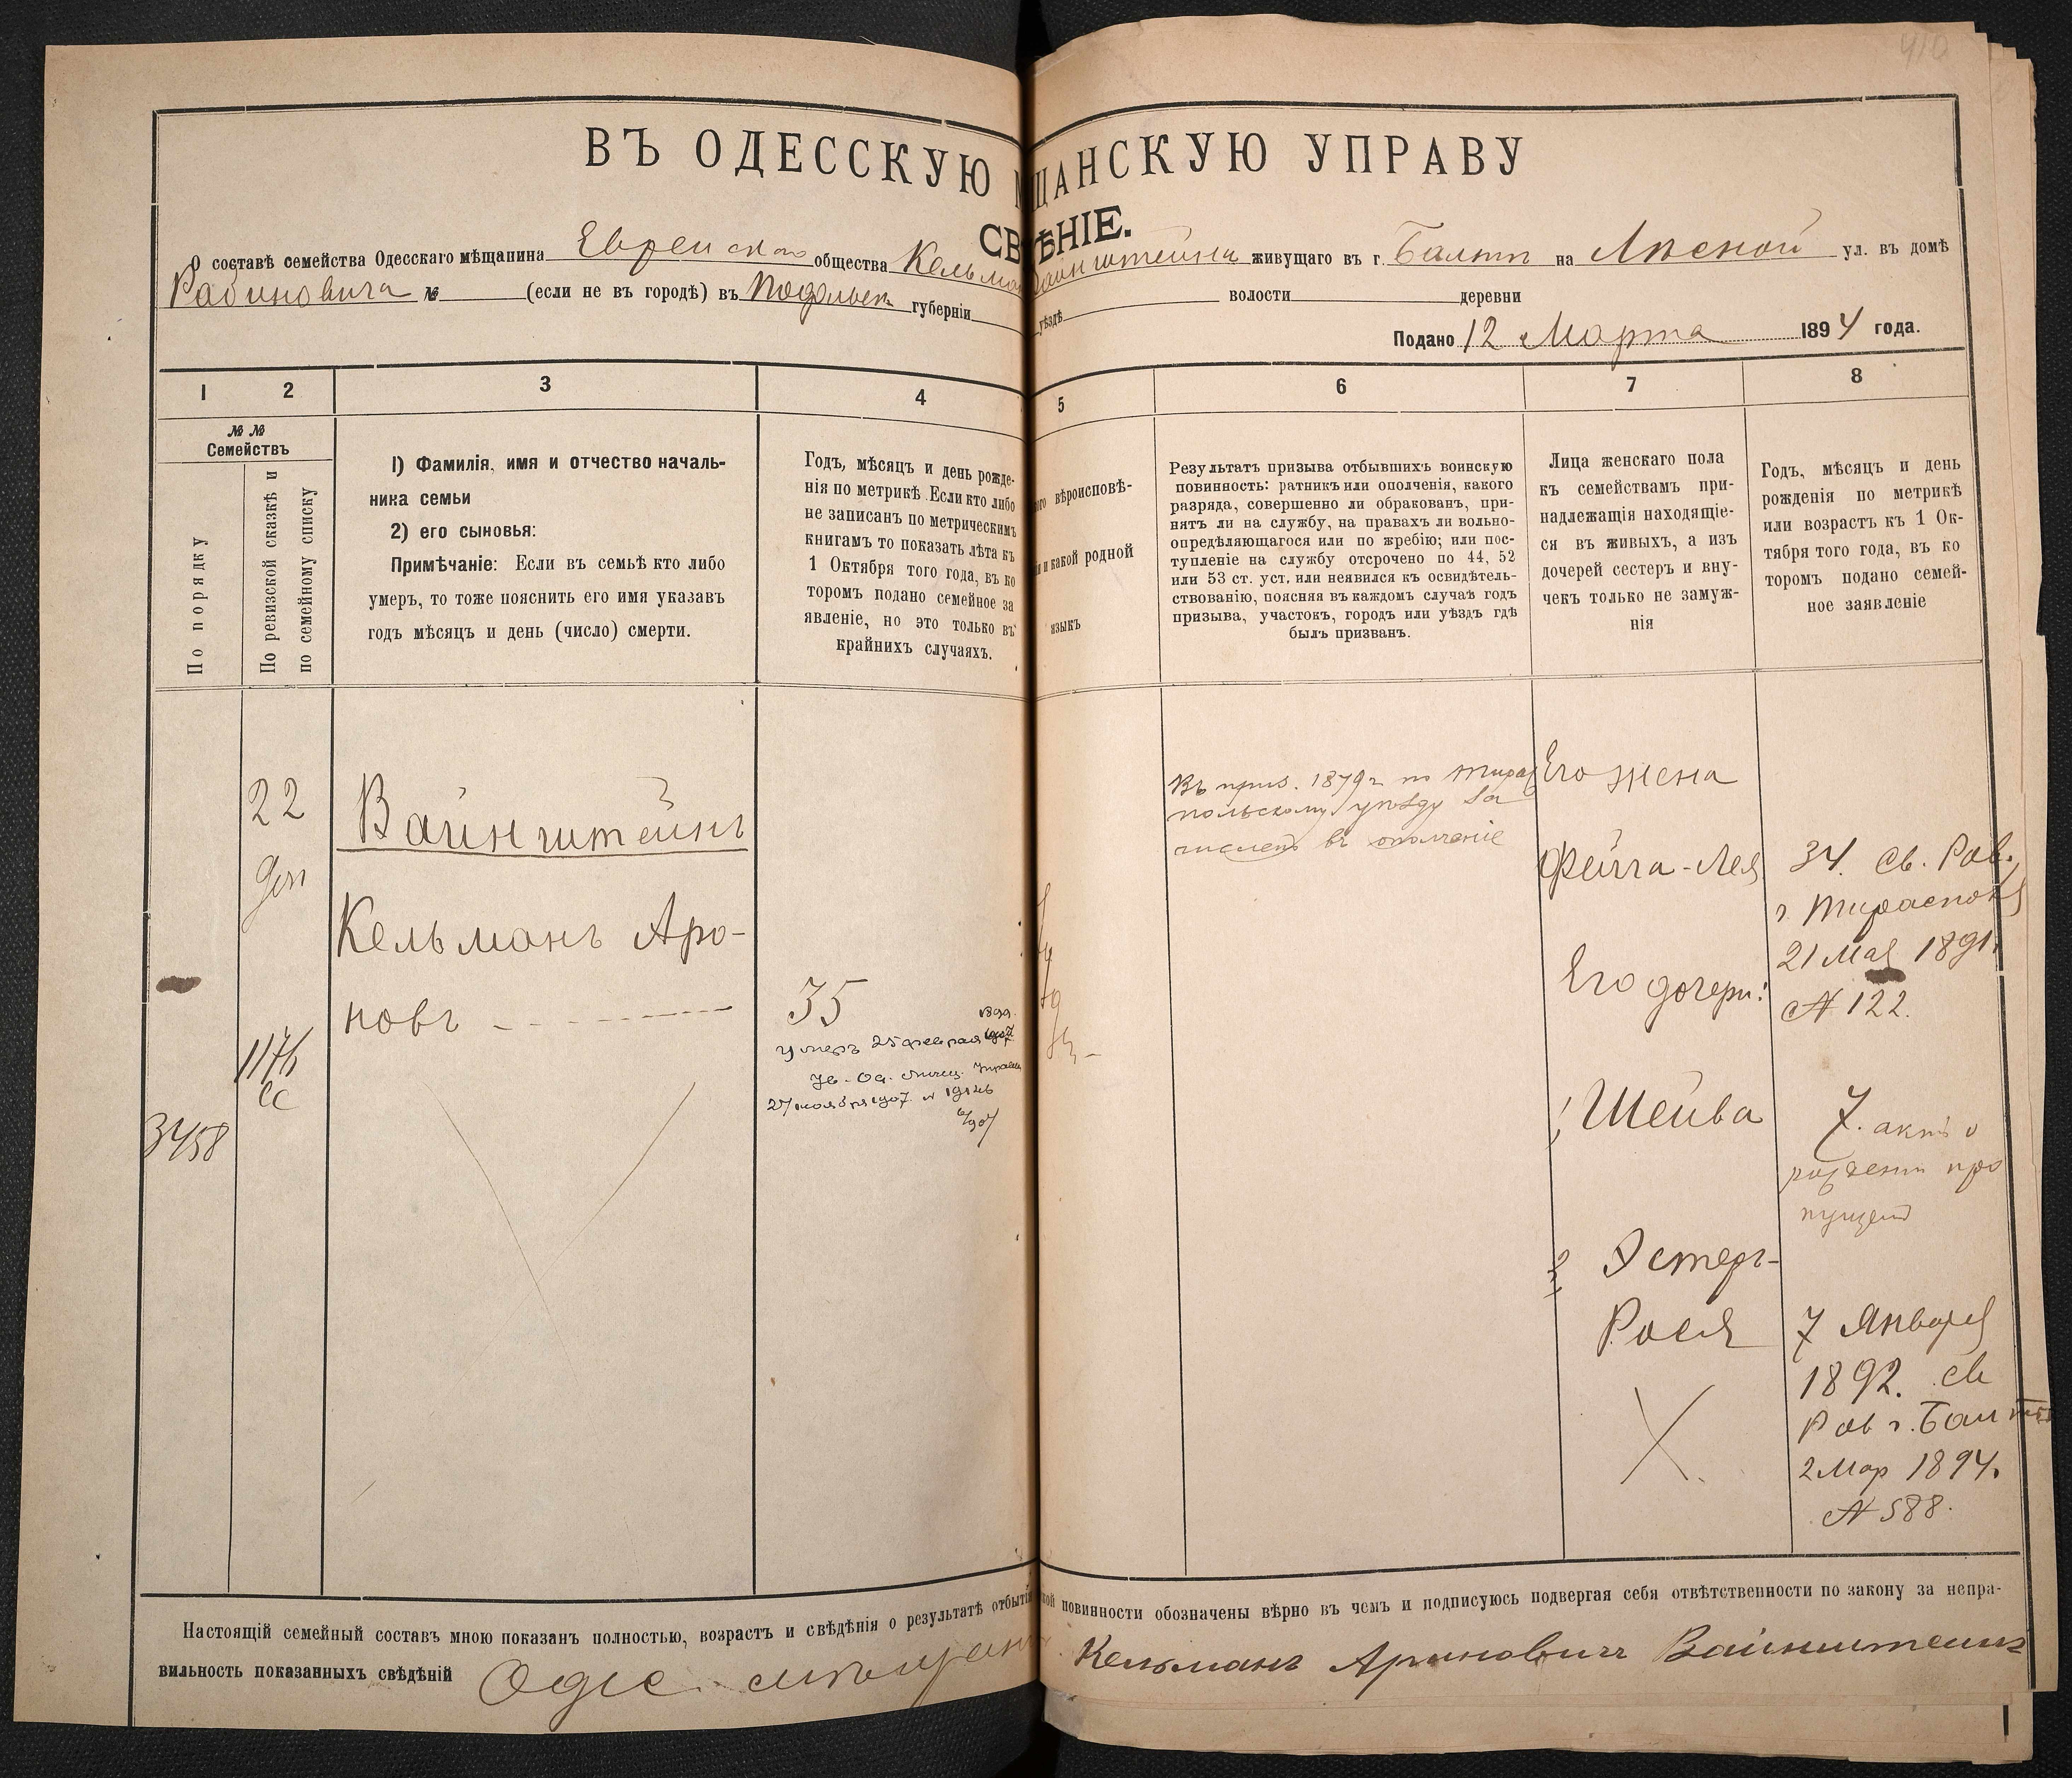 410
ВЪ ОДЕССКУЮ МЩАНСКУЮ УПРАВУ
СВѢНІЕ.
О составѣ семейства Одесскаго мѣщанина Еврейскаго общества Кельмана Вайнштейна живущаго въ г. Балтѣ на Лѣсной ул. въ домѣ
Рабиновича № (если не въ городѣ) въ Подольск губерніи уѣздѣ волости деревни
Подано 12 Марта 1894 года.
1 2 3 4 5 6 7 8
№ №
Семействъ
По порядку
По ревизской сказкѣ и
по семейному списку
1) Фамилія, имя и отчество началь-
ника семьи
2) его сыновья:
Примѣчаніе: Если въ семьѣ кто либо
умеръ, то тоже пояснить его имя указавъ
годъ мѣсяцъ и день (число) смерти.
Годъ, мѣсяцъ и день рожде-
нія по метрикѣ. Если кто либо
не записанъ по метрическимъ
книгамъ то показать лѣта къ
1 Октября того года, въ ко
торомъ подано семейное за
явленіе, но это только въ
крайнихъ случаяхъ.
вѣроисповѣ-
и какой родной
языкъ
Результатъ призыва отбывшихъ воинскую
повинность: ратникъ или ополченія, какого
разряда, совершенно ли обракованъ, при-
нятъ ли на службу, на правахъ ли вольно-
опредѣляющагося или по жребію; или пос-
тупленіе на службу отсрочено по 44, 52
или 53 ст. уст. или неявился къ освидѣтель-
ствованію, поясняя въ каждомъ случаѣ годъ
призыва, участокъ, городъ или уѣздъ гдѣ
былъ призванъ.
Лица женскаго пола
къ семействамъ при-
надлежащія находящіе-
ся въ живыхъ, а изъ
дочерей сестеръ и вну-
чекъ только не замуж-
нія
Годъ, мѣсяцъ и день
рожденія по метрикѣ
или возрастъ къ 1 Ок-
тября того года, въ ко
торомъ подано семей-
ное заявленіе
22
доп
1176
сс
3458
Вайнштейнъ
Кельманъ Аро-
новъ
35
1899
Умеръ 25 февраля 1907
Ув. Од. Мѣщ. Управы
27 ноября 1907 № 19146
Въ приз. 1879 г. по Тирас
польскому уѣзду за
численъ въ ополченіе
Его жена
Фейга-Лея
34. Св. Рав.
г. Тирасполь
21 Мая 1891.
№ 122.
Его дочери:
1 Шейва
7. актъ о
рожденіи про
пущенъ
2 Эстеръ-
Рося
7 Января
1892. св
Рав г. Балты
2 Мар 1894.
№ 588.
Настоящій семейный составъ мною показанъ полностью, возрастъ и свѣдѣнія о результатѣ отбытія повинности обозначены вѣрно въ чемъ и подписуюсь подвергая себя отвѣтственности по закону за непра-
вильность показанныхъ свѣдѣній Одес. мѣщан Кельманъ Ароновичъ Вайнштейнъ